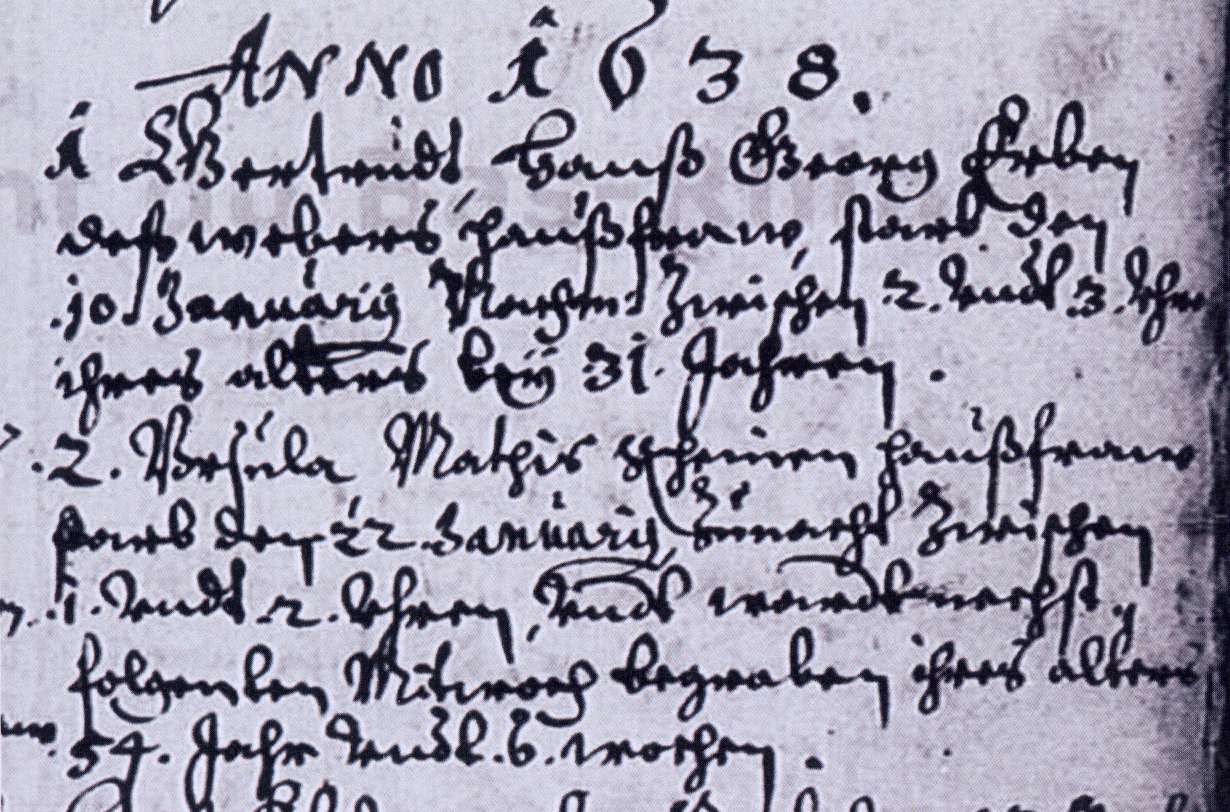 ANNO 1638.
1 Gertrudt, Hanß Georg Erben
deß webers haußfraw, starb den
.10 Januarij Nachts zwischen .2. vndt .3. Vhrn
ihres alters bey 31. Jahren .
.2. Vrsula Mathis haußfraw
starb den 22 Januarij, zunacht zwischen
.1. vndt .2. Vhren, vndt ward nechst
folgenden Mitwoch begraben ihres alters
54. Jahr vndt .6. wochen .